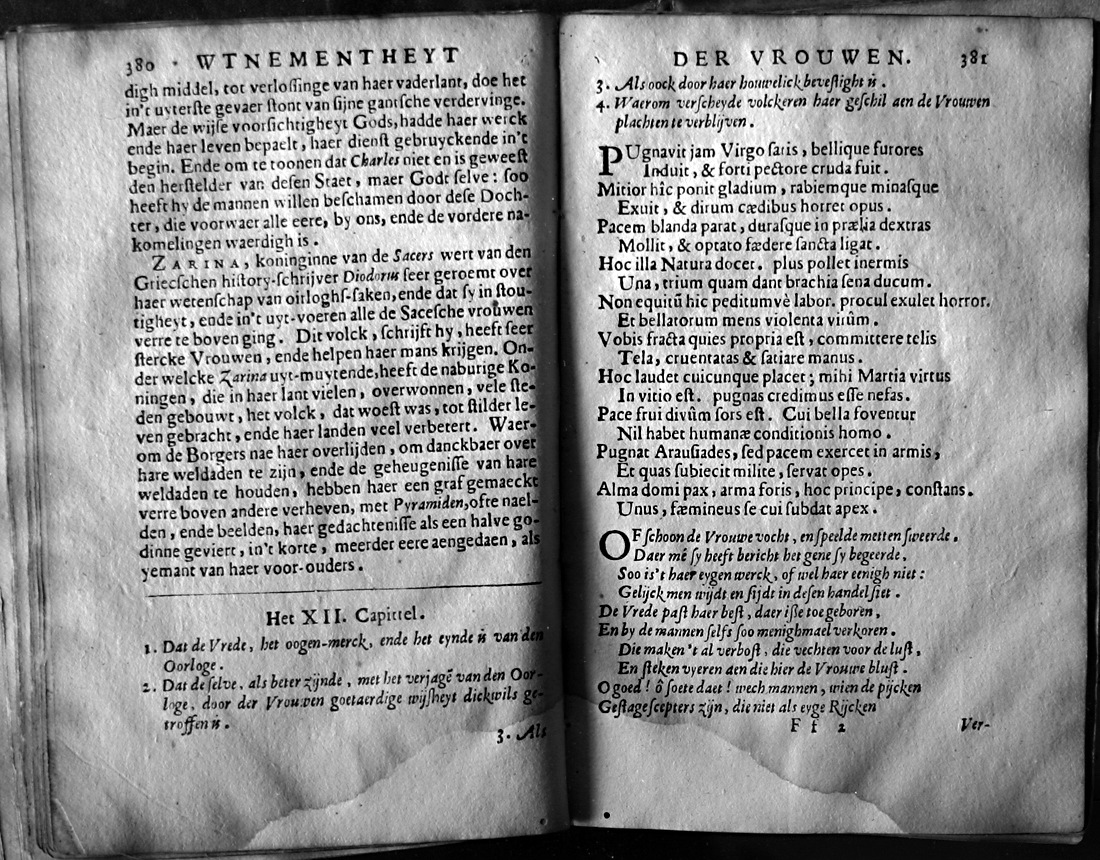 380 · WTNEMENTHEYT
digh middel, tot verlossinge van haer vaderlant, doe het
in't uyterste gevaer stont van sijne gantsche verdervinge.
Maer de wijse voorsichtigheyt Gods, hadde haer werck
ende haer leven bepaelt, haer dienst gebruyckende in't
begin. Ende om te toonen dat Charles niet en is geweest
den herstelder van desen Staet, maer Godt selve: soo
heeft hy de mannen willen beschamen door dese Doch-
ter, die voorwaer alle eere, by ons, ende de vordere na-
komelingen waerdigh is.
ZARINA, koninginne van de Sacers wert van den
Griecschen history-schrijver Diodorus seer geroemt over
haer wetenschap van oirloghs-saken, ende dat sy in stou-
tigheyt, ende in't uyt-voeren alle de Sacesche vrouwen
verre te boven ging. Dit volck, schrijft hy, heeft seer
stercke Vrouwen, ende helpen haer mans krijgen. On-
der welcke Zarina uyt-muytende, heeft de naburige Ko-
ningen, die in haer lant vielen, overwonnen, vele ste-
den gebouwt, het volck, dat woest was, tot stilder le-
ven gebracht, ende haer landen veel verbetert. Waer-
om de Borgers nae haer overlijden, om danckbaer over
hare weldaden te zijn, ende de geheugenisse van hare
weldaden te houden, hebben haer een graf gemaeckt
verre boven andere verheven, met Pyramiden, ofte nael-
den, ende beelden, haer gedachtenisse als een halve go-
dinne geviert, in't korte, meerder eere aengedaen, als
yemant van haer voor-ouders.
Het XII. Capittel.
1. Dat de Vrede, het oogen-merck, ende het eynde is van den
Oorloge.
2. Dat de selve, als beter zijnde, met het verjagē van den Oor-
loge, door der Vrouwen goetaerdige wijsheyt dickwils ge-
troffen is.
3. Als
DER VROUWEN. 381
3. Als oock door haer houwelick bevestight is.
4. Waerom verscheyde volckeren haer geschil aen de Vrouwen
plachten te verblijven.
PUgnavit jam Virgo satis, bellique furores
Induit, & forti pectore cruda fuit.
Mitior hîc ponit gladium, rabiemque minasque
Exuit, & dirum cædibus horret opus.
Pacem blanda parat, durasque in prælia dextras
Mollit, & optato fædere sancta ligat.
Hoc illa Natura docet. plus pollet inermis
Una, trium quam dant brachia sena ducum.
Non equitū hic peditumvè labor. procul exulet horror.
Et bellatorum mens violenta virûm.
Vobis fracta quies propria est, committere telis
Tela, cruentatas & satiare manus.
Hoc laudet cuicunque placet; mihi Martia virtus
In vitio est. pugnas credimus esse nefas.
Pace frui divûm sors est. Cui bella foventur
Nil habet humanæ conditionis homo.
Pugnat Arausiades, sed pacem exercet in armis,
Et quas subiecit milite, servat opes.
Alma domi pax, arma foris, hoc principe, constans.
Unus, fæmineus se cui subdat apex.
OF schoon de Vrouwe vocht, en speelde metten sweerde.
Daer mê sy heeft bericht het gene sy begeerde.
Soo is't haer eygen werck, of wel haer eenigh niet:
Gelijck men wijdt en sijdt in desen handel siet.
De Vrede past haer best, daer isse toe geboren,
En by de mannen selfs soo menighmael verkoren.
Die maken't al verbost, die vechten voor de lust,
En steken vyeren aen die hier de Vrouwe blust.
O goed! ô soete daet! wech mannen, wien de pijcken
Gestage scepters zijn, die niet als eyge Rijcken
Ff 2 Ver-